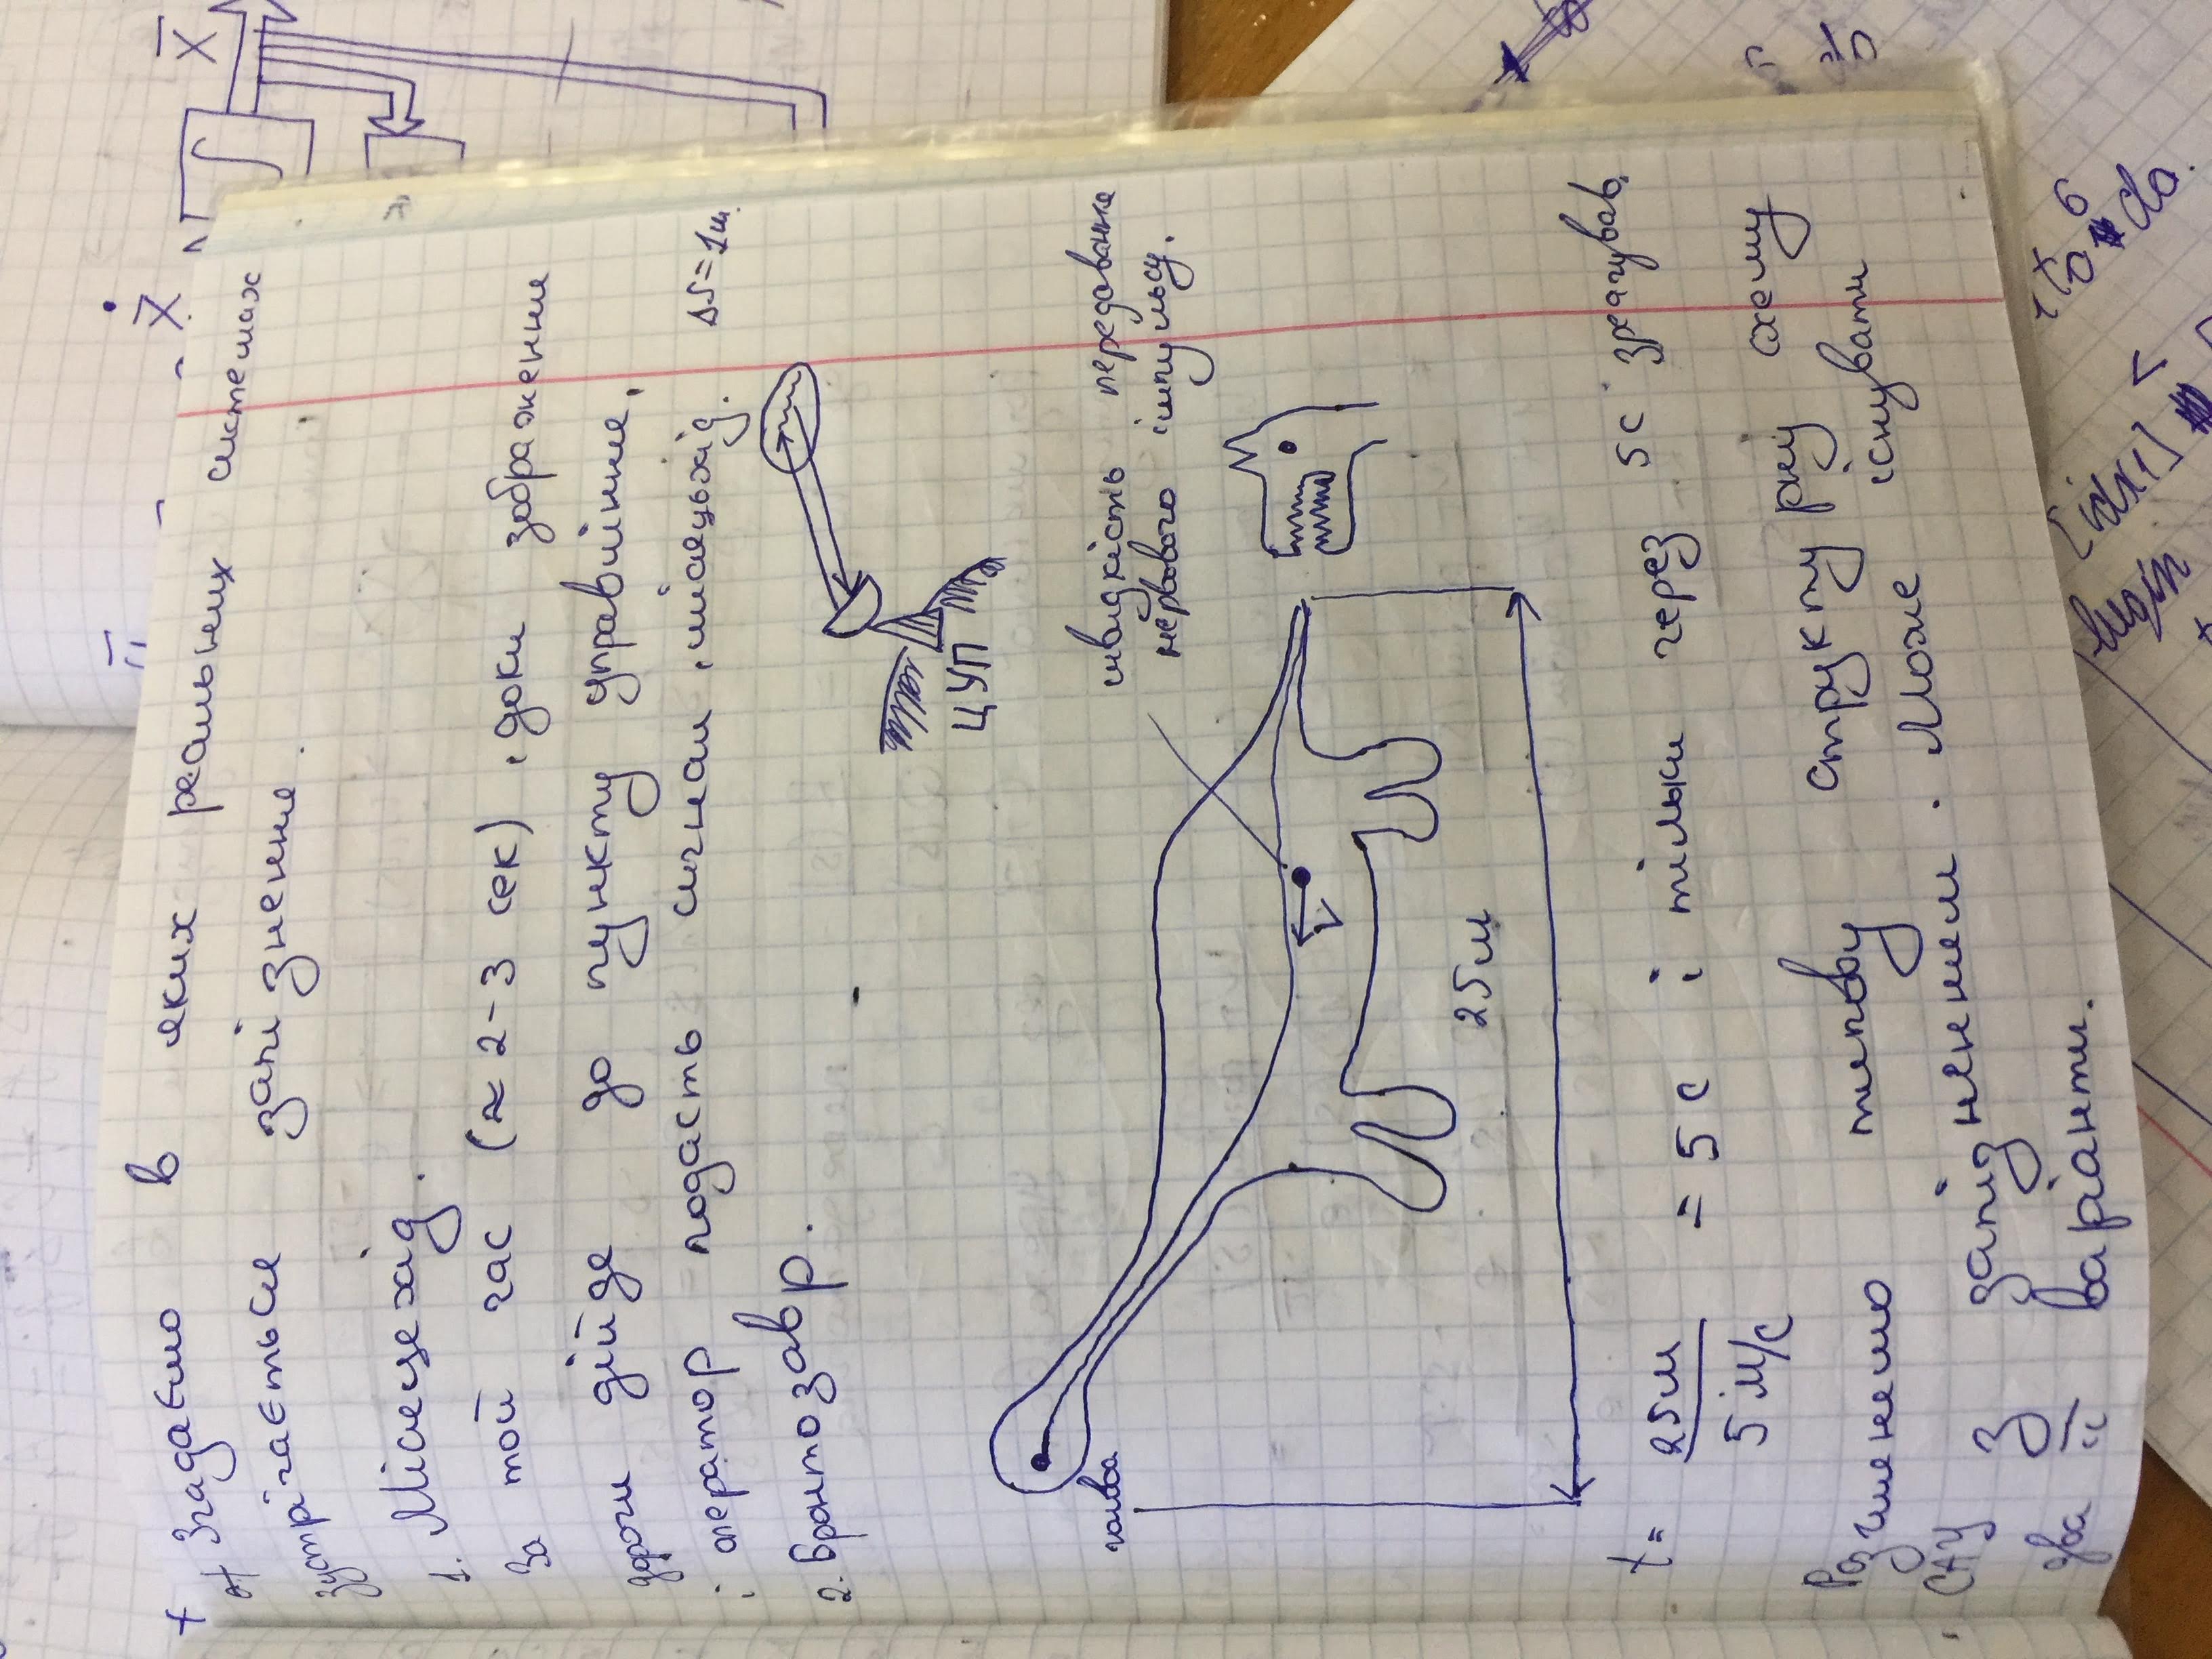 Згадаємо в яких реальних системах
зустрічається запізнення.
1. Місяцехід.
За той час (≈ 2-3 сек), доки зображення
дороги дійде до пункту управління,
і оператор подасть сигнал, місяцьхід. ΔS = 1м.
2. Бронтозавр.
ЦУП
голова
швидкість передавання
нервового імпульсу.
V
25м
t = 25м / 5 м/с = 5 с і тільки через 5с зреагував.
Розглянемо типову структурну схему
САУ з запізненням. Може існувати
два її варіанти.
Ẋ
X̄
∫